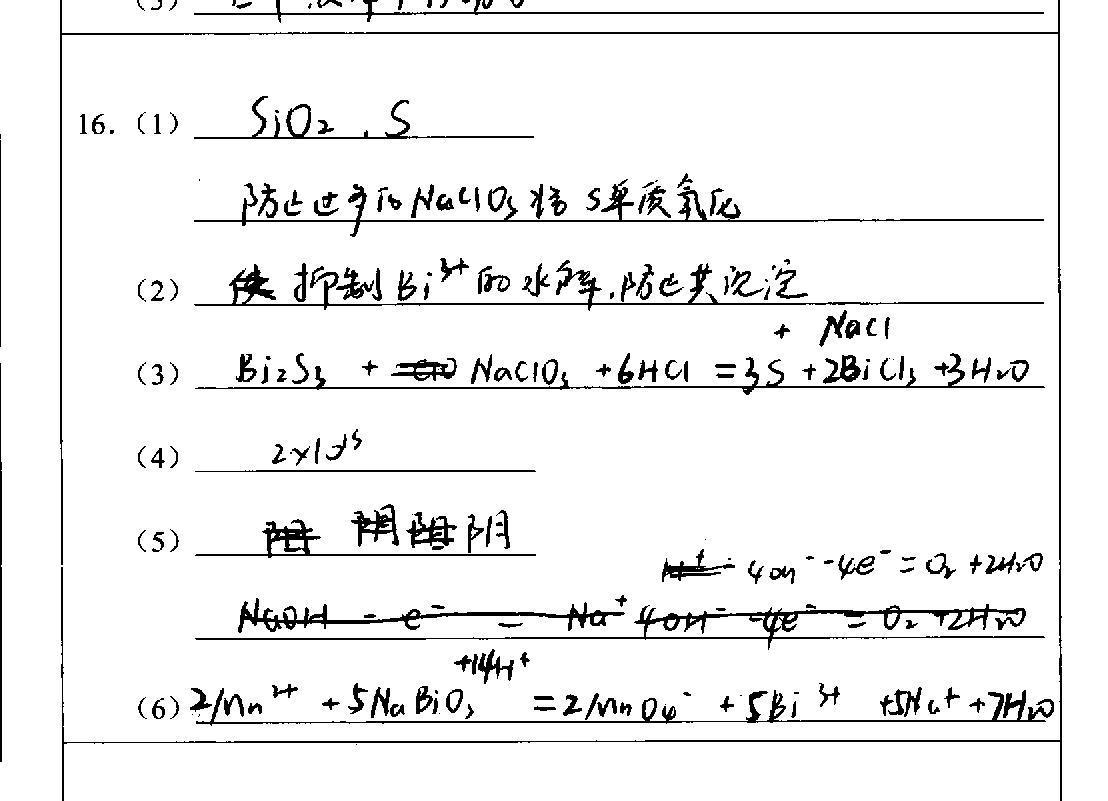 (5)
16. (1) SiO₂ . S
防止过多的NaClO₃将S单质氧化
(2) 抑制Bi³⁺的水解,防止其沉淀
+ NaCl
(3) Bi₂S₃ + NaClO₃ +6HCl =3S +2BiCl₃ +3H₂O
(4)
(5) 阴
4OH⁻-4e⁻=O₂+2H₂O
NaOH - e⁻ = Na⁺ 4OH⁻ -4e⁻ = O₂ +2H₂O
+14H⁺
(6) 2Mn²⁺ +5NaBiO₃ =2MnO₄⁻ +5Bi³⁺ +5Na⁺+7H₂O